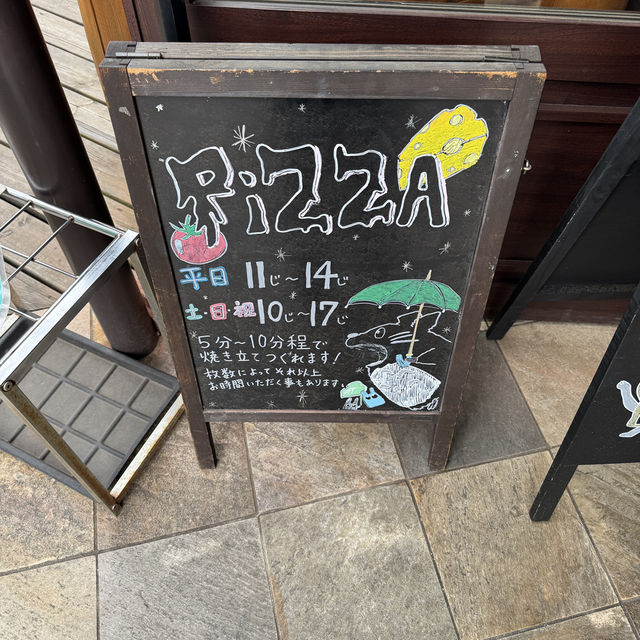 PiZZA
平日 11じ～14じ
土・日・祝 10じ～17じ
5分～10分程で
焼き立てつくれます！
枚数によってそれ以上
お時間いただく事もあります。